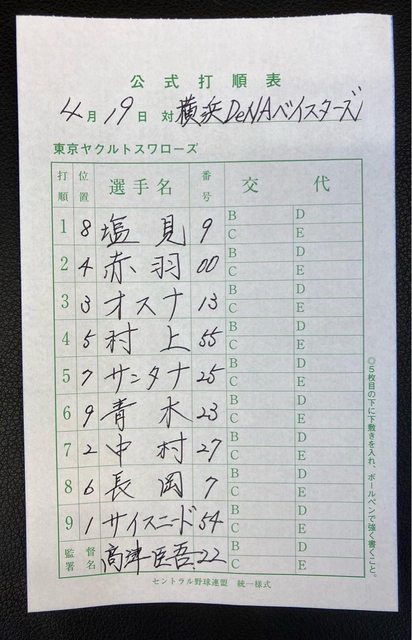 公式打順表
4月19日 対 横浜DeNAベイスターズ
東京ヤクルトスワローズ
打順 位置 選手名 番号 交代
1 8 塩見 9 B D C E
2 4 赤羽 00 B D C E
3 3 オスナ 13 B D C E
4 5 村上 55 B D C E
5 7 サンタナ 25 B D C E
6 9 青木 23 B D C E
7 2 中村 27 B D C E
8 6 長岡 7 B D C E
9 1 サイスニード 54 B D C E
監督署名 高津臣吾 22 B D C E
セントラル野球連盟 統一様式
◎5枚目の下に下敷きを入れ、ボールペンで強く書くこと。